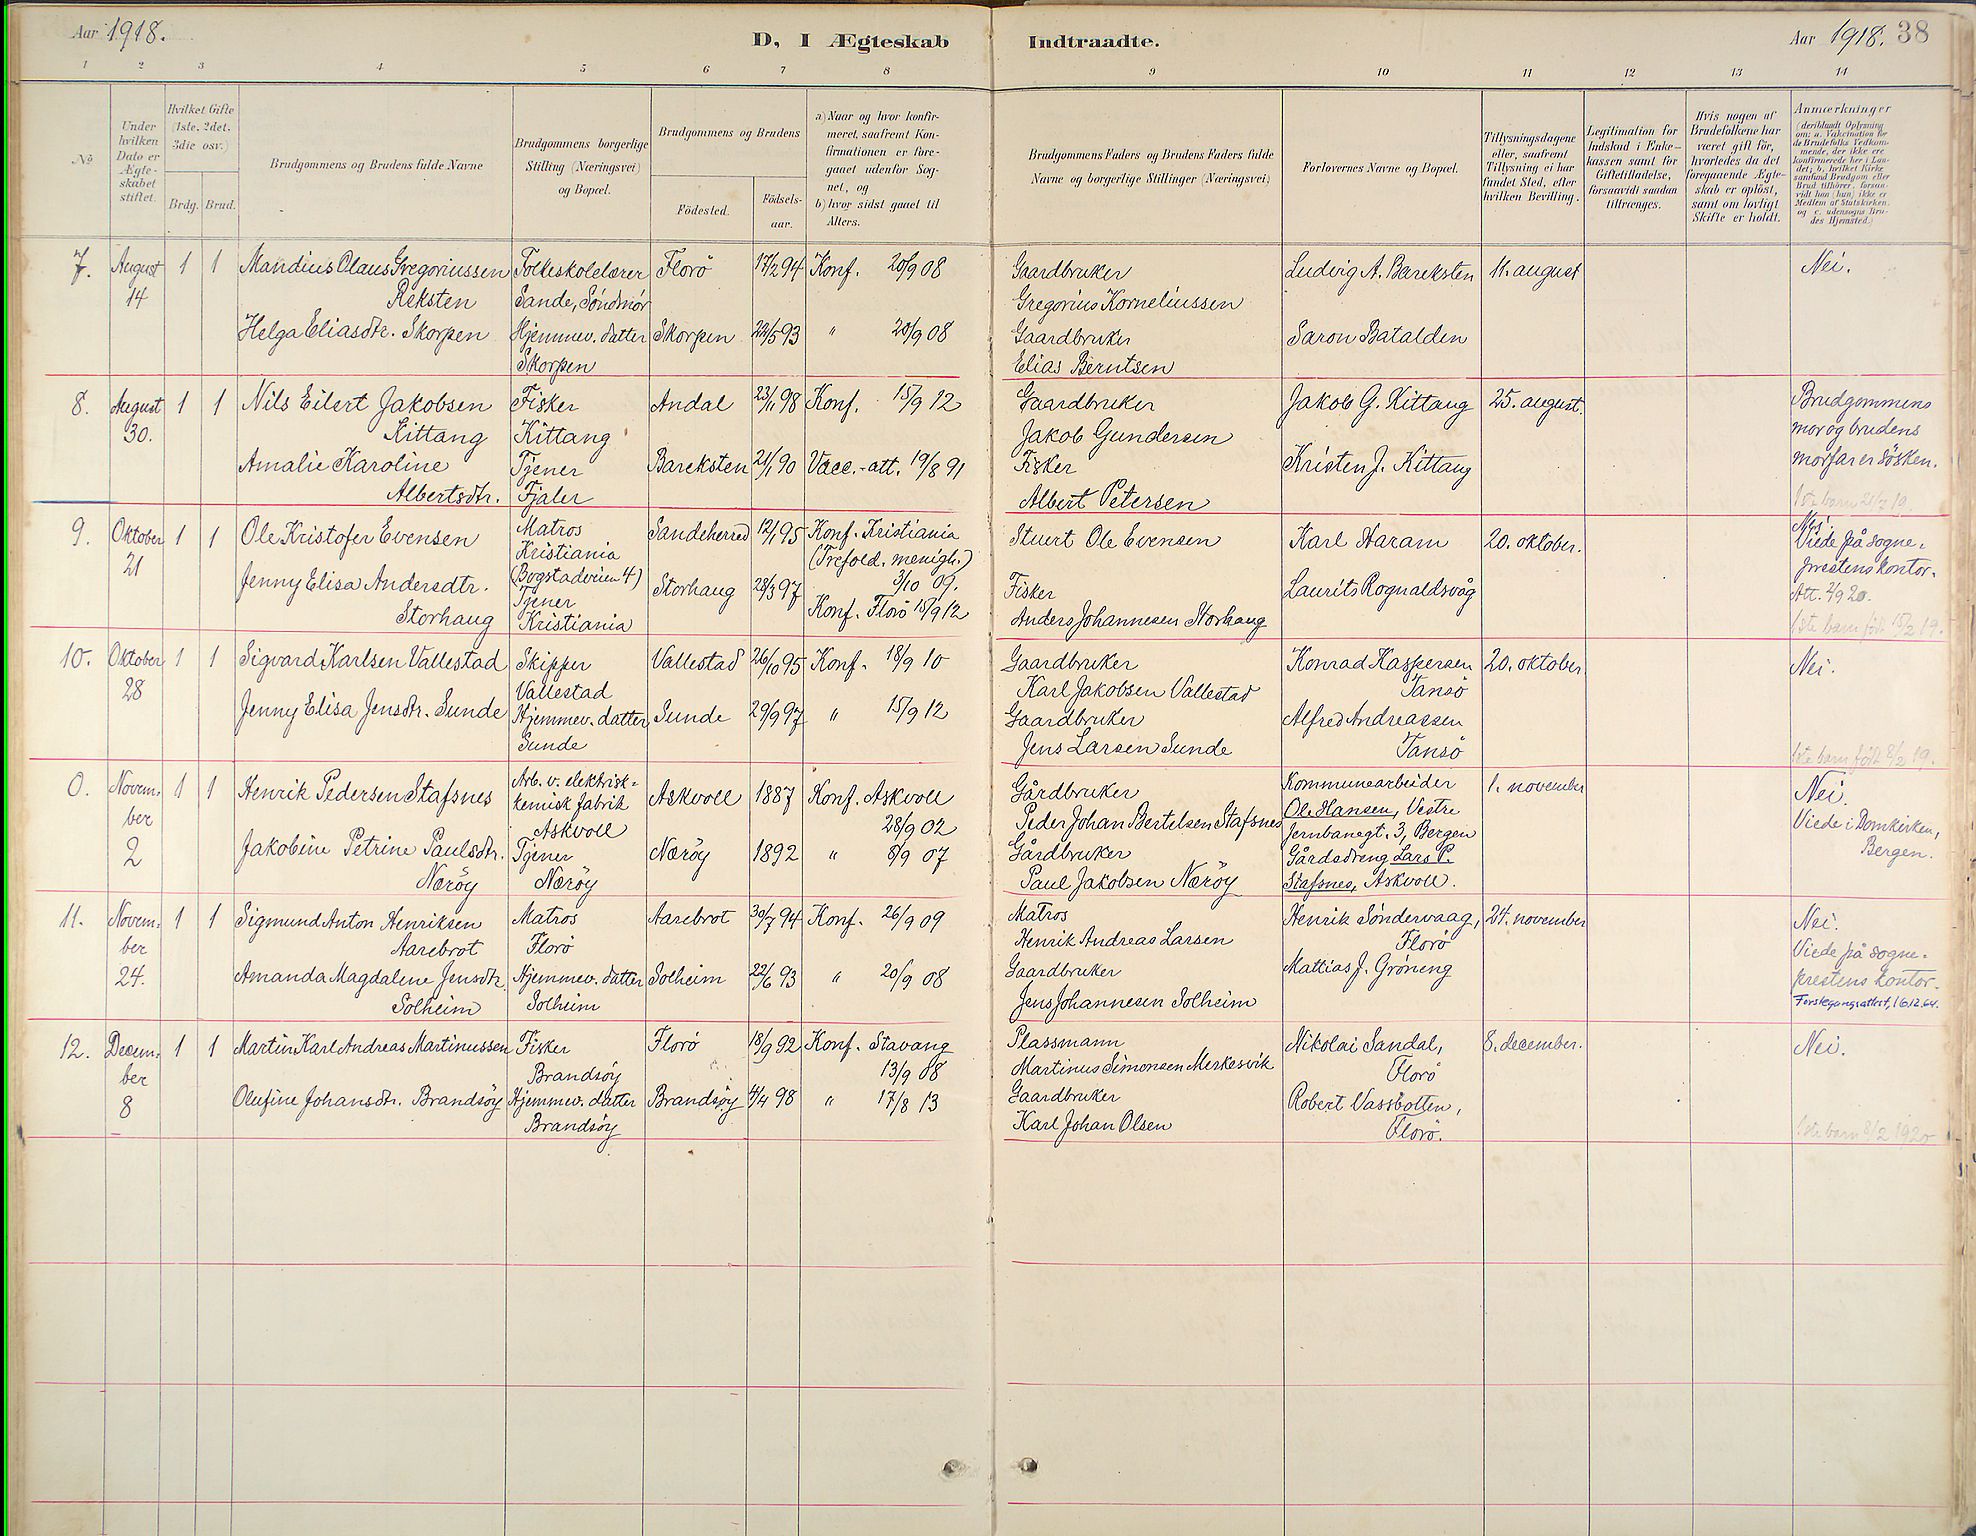 Aar 1918.
D, I Ægteskab Indtraadte.
Aar 1918. 38
1 2 3 4 5 6 7 8 9 10 11 12 13 14
No
Under hvilken Dato er Ægteskabet stiftet.
Hvilket Gifte (1ste, 2det, 3die osv.)
Brdg. Brud.
Brudgommens og Brudens fulde Navne
Brudgommens borgerlige Stilling (Næringsvei) og Bopæl.
Brudgommens og Brudens
Födested.
Födselsaar.
a) Naar og hvor konfirmeret, saafremt Konfirmationen er foregaaet udenfor Sognet, og
b) hvor sidst gaaet til Alters.
Brudgommens Faders og Brudens Faders fulde Navne og borgerlige Stillinger (Næringsvei)
Forlovernes Navne og Bopæl.
Tillysningsdagene eller, saafremt Tillysning ei har fundet Sted, efter hvilken Bevilling.
Legitimation for Indskud i Enkekassen samt for Giftetilladelse, forsaavidt saadan tiltrænges.
Hvis nogen af Brudefolkene har været gift för, hvorledes da det foregaaende Ægteskab er oplöst, samt om lovligt Skifte er holdt.
Anmærkninger
(deriblandt Oplysning om: a. Vakcination for de Brudefolks Vedkommende, der ikke ere konfirmerede her i Landet; b. hvilket Kirkesamfund Brudgom eller Brud tilhörer, forsaavidt han (hun) ikke er Medlem af Statskirken, og c. udensogns Brudes Hjemsted.)
7. August 14 1 1
Mandius Olaus Gregoriussen Reksten
Folkeskolelærer
Sande, Söndmör
Florö 17/2 94 Konf. 20/9 08
Helga Eliasdtr. Skorpen
Hjemmev. datter
Skorpen
Skorpen 22/5 93 " 20/9 08
Gaardbruker
Gregorius Korneliussen
Gaardbruker
Elias Berntsen
Ludvig A. Bareksten
Saron Batalden
11. august
Nei.
8. August 30. 1 1
Nils Eilert Jakobsen Kittang
Fisker
Kittang
Andal 23/11 98 Konf. 15/9 12
Amalie Karoline Albertsdtr.
Tjener
Fjaler
Bareksten 21/1 90 Vacc.-att. 19/8 91
Gaardbruker
Jakob Gundersen
Fisker
Albert Petersen
Jakob G. Kittang
Kristen J. Kittang
25. august.
Brudgommens
mor og brudens
morfar er sösken.
1ste barn 21/2 19.
9. Oktober 21 1 1
Ole Kristofer Evensen
Matros
Kristiania
(Bogstadveien 4)
Sandeherred 12/1 95 Konf. Kristiania
(Trefold. menigh.)
3/10 09.
Jenny Elisa Andersdtr. Storhaug
Tjener
Kristiania
Storhaug 28/3 97 Konf. Florö 15/9 12
Stuert Ole Evensen
Fisker
Anders Johannesen Storhaug
Karl Haram
Laurits Rognaldsvåg
20. oktober.
Nei.
Viede på sogne-
prestens kontor.
Att. 2/9 20.
1ste barn födt 15/2 19.
10. Oktober 28 1 1
Sigvard Karlsen Vallestad
Skipper
Vallestad
Vallestad 26/10 95 Konf. 18/9 10
Jenny Elisa Jensdtr. Sunde
Hjemmev. datter
Sunde
Sunde 29/9 97 " 15/9 12
Gaardbruker
Karl Jakobsen Vallestad
Gaardbruker
Jens Larsen Sunde
Konrad Kaspersen
Tansö
Alfred Andreassen
Tansö
20. oktober
Nei.
1ste barn födt 8/2 19.
0. November 2 1 1
Henrik Pedersen Stafsnes
Arb. v. elektrisk-
kemisk fabrik
Askvoll
Askvoll 1887 Konf. Askvoll
28/9 02
Jakobine Petrine Paulsdtr. Næröy
Tjener
Næröy
Næröy 1892 " 8/9 07
Gårdbruker
Peder Johan Bertelsen Stafsnes
Gårdbruker
Paul Jakobsen Næröy
Kommunearbeider
Ole Hansen, Vestre
Jernbanegt. 3, Bergen
Gårdsdreng Lars P.
Stafsnes, Askvoll.
1. november
Nei.
Viede i Domkirken,
Bergen.
11. November 24. 1 1
Sigmund Anton Henriksen Aarebrot
Matros
Florö
Aarebrot 30/7 94 Konf. 26/9 09
Amanda Magdalene Jensdtr. Solheim
Hjemmev. datter
Solheim
Solheim 22/6 93 " 20/9 08
Matros
Henrik Andreas Larsen
Gaardbruker
Jens Johannesen Solheim
Henrik Söndervaag,
Florö
Mattias J. Gröneng
24. november
Nei.
Viede på sogne-
prestens kontor.
12. December 8 1 1
Martin Karl Andreas Martinussen
Fisker
Brandsöy
Florö 18/9 92 Konf. Stavang
13/9 08
Olufine Johansdtr. Brandsöy
Hjemmev. datter
Brandsöy
Brandsöy 4/4 98 " 17/8 13
Plassmann
Martinus Simonsen Merkesvik
Gaardbruker
Karl Johan Olsen
Nikolai Sandal,
Florö
Robert Vassbotten,
Florö.
8. december.
Nei.
1ste barn 8/2 1920